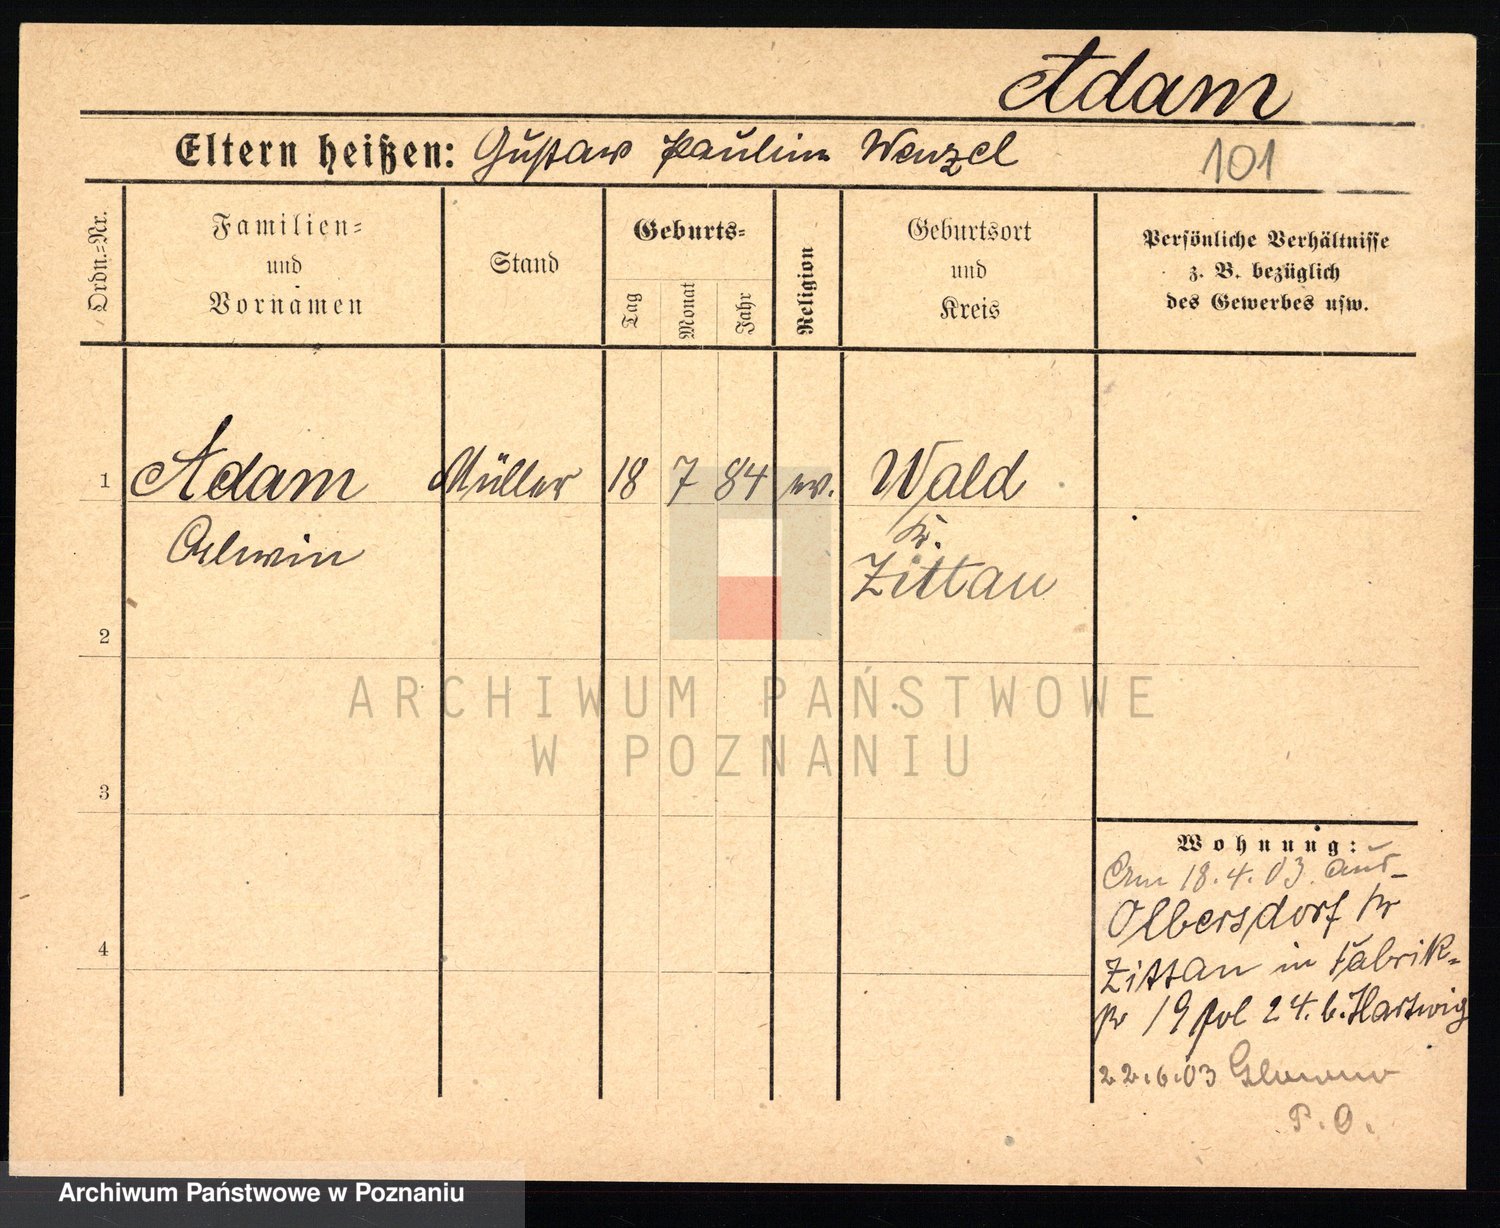 Adam
Eltern heißen: Gustav Pauline Wenzel
101
Ordn.=Nr.
Familien=
und
Vornamen
Stand
Geburts=
Tag
Monat
Jahr
Religion
Geburtsort
und
Kreis
Persönliche Verhältnisse
z. B. bezüglich
des Gewerbes usw.
1 Adam Müller 18 7 84 ev. Wald
Kr.
Zittau
2
ARCHIWUM PAŃSTWOWE
W POZNANIU
3
Wohnung:
Am 18.4.03. aus
Olbersdorf Kr
Zittau in Fabrik-
19 pol 24. b. Hartwig
4
22.6.03 Glowno
P. O.
Archiwum Państwowe w Poznaniu